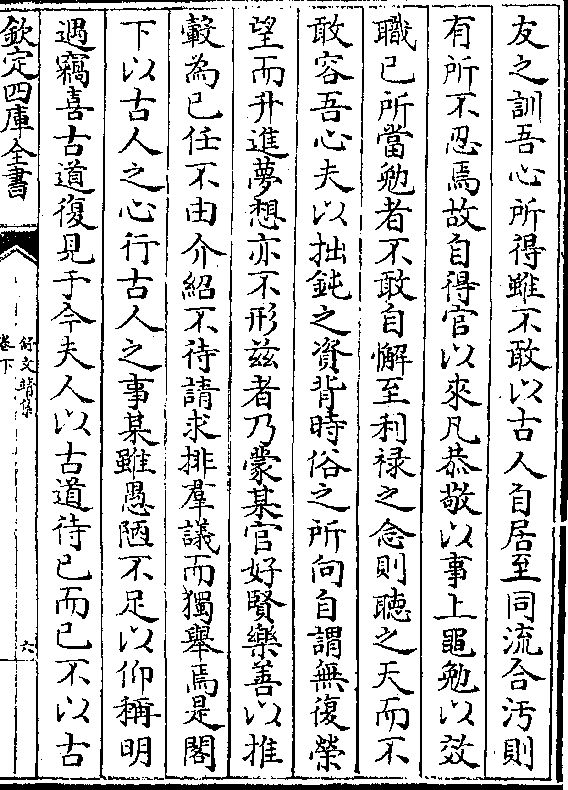 友之訓吾心所得雖不敢以古人自居至同流合汚則
有所不忍焉故自得官以來凡恭敬以事上黽勉以效
職己所當勉者不敢自懈至利禄之念則聽之天而不
敢容吾心夫以拙鈍之資背時俗之所向自謂無復榮
望而升進夢想亦不形兹者乃蒙某官好賢樂善以推
轂為己任不由介紹不待請求排羣議而獨舉焉是閣
下以古人之心行古人之事某雖愚陋不足以仰稱明
遇竊喜古道復見于今夫人以古道待己而己不以古
欽定四庫全書
舒文靖集
卷下
六